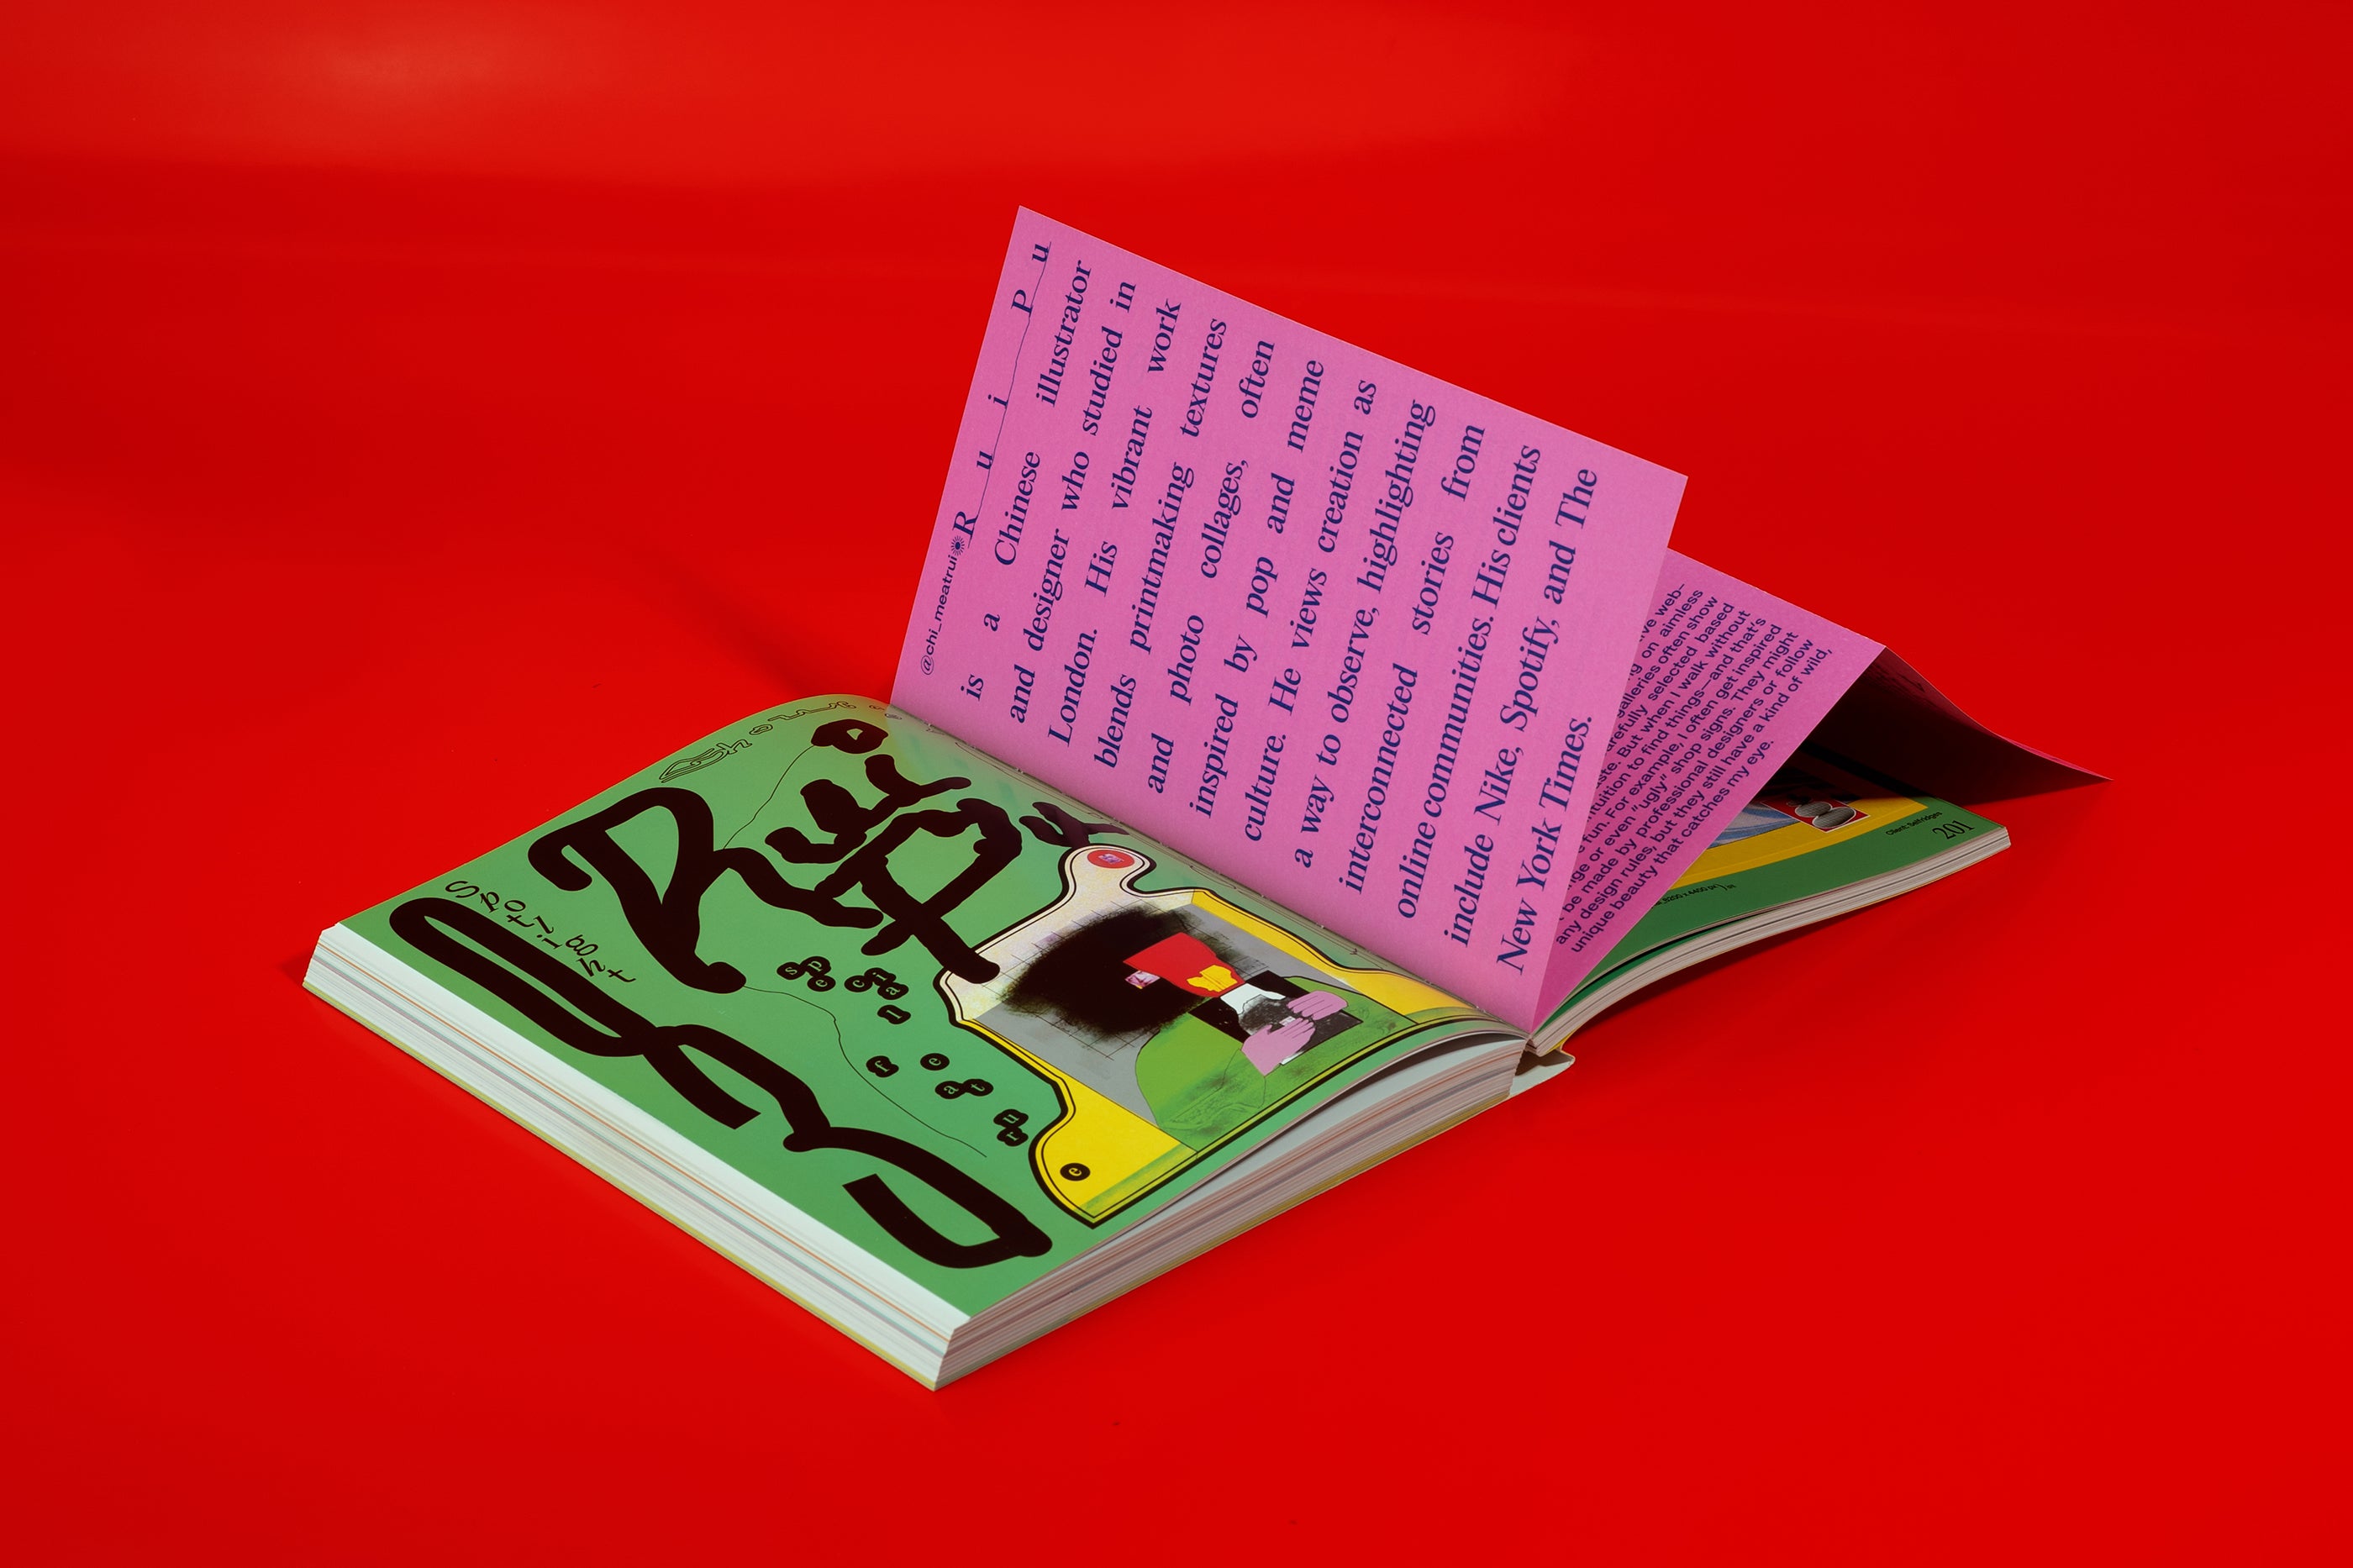 Rui Pu
Spotlight
special
feature
@chi_meatrui
Rui Pu
is a Chinese illustrator
and designer who studied in
London. His vibrant work
blends printmaking textures
and photo collages, often
inspired by pop and meme
culture. He views creation as
a way to observe, highlighting
interconnected stories from
online communities. His clients
include Nike, Spotify, and The
New York Times.
web-
on aimless
galleries often show
selected based
But when I walk without
intuition to find things—and that's
fun. For example, I often get inspired
or even "ugly" shop signs. They might
be made by professional designers or follow
any design rules, but they still have a kind of wild,
unique beauty that catches my eye.
Client: Selfridges
201